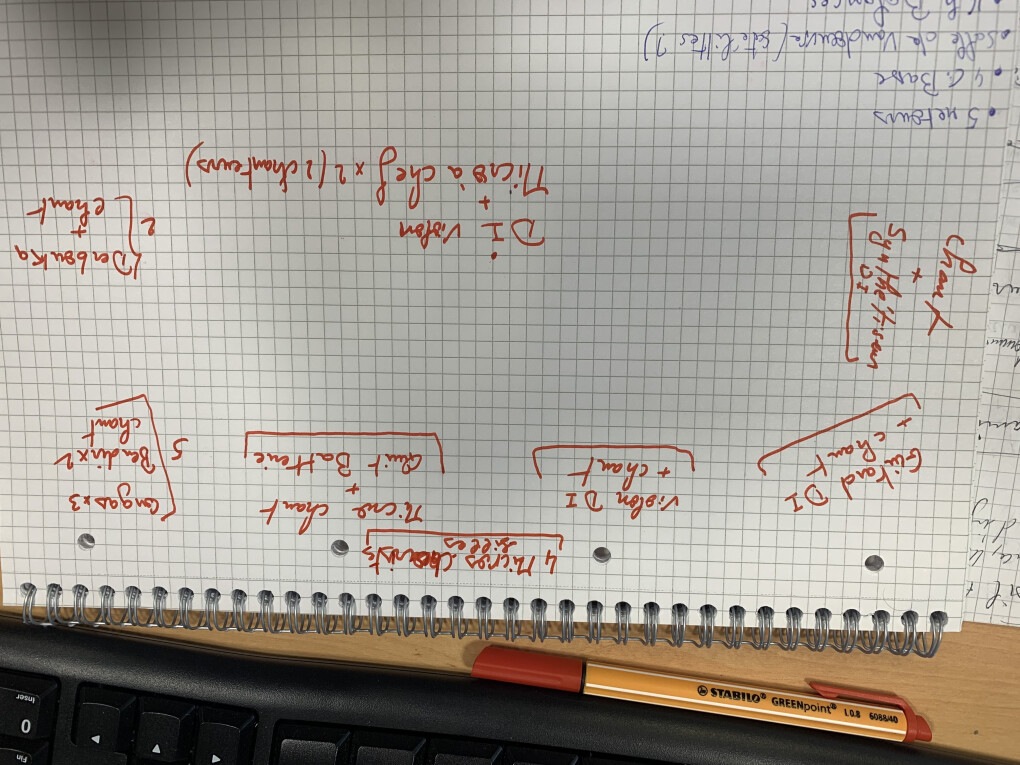 4 Micros choristes
filles
Guitard DI
+ chant
Violon DI
+ chant
Micro chant
+
Quit Batterie
Congas x 3
Bendir x 2
chant
5
chant
+
Synthétiseur
DI
DI Violon
+
Micro à chef x 2 (2 chanteurs)
Derbouka
+
chant
2
• 5 retours
• 4 C. Basse
• Salle de Vandoeuvre
Balances
STABILO® GREENpoint® 1.0.8 6088/40
Inser
0
Fin